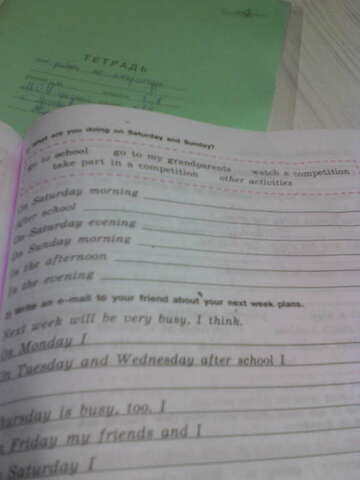 ТЕТРАДЬ
What are you doing on Saturday and Sunday?
go to school go to my grandparents watch a competition
take part in a competition other activities
On Saturday morning
After school
On Saturday evening
On Sunday morning
In the afternoon
In the evening
Write an e-mail to your friend about your next week plans.
Next week will be very busy, I think.
On Monday I
On Tuesday and Wednesday after school I
Thursday is busy, too. I
On Friday my friends and I
On Saturday I